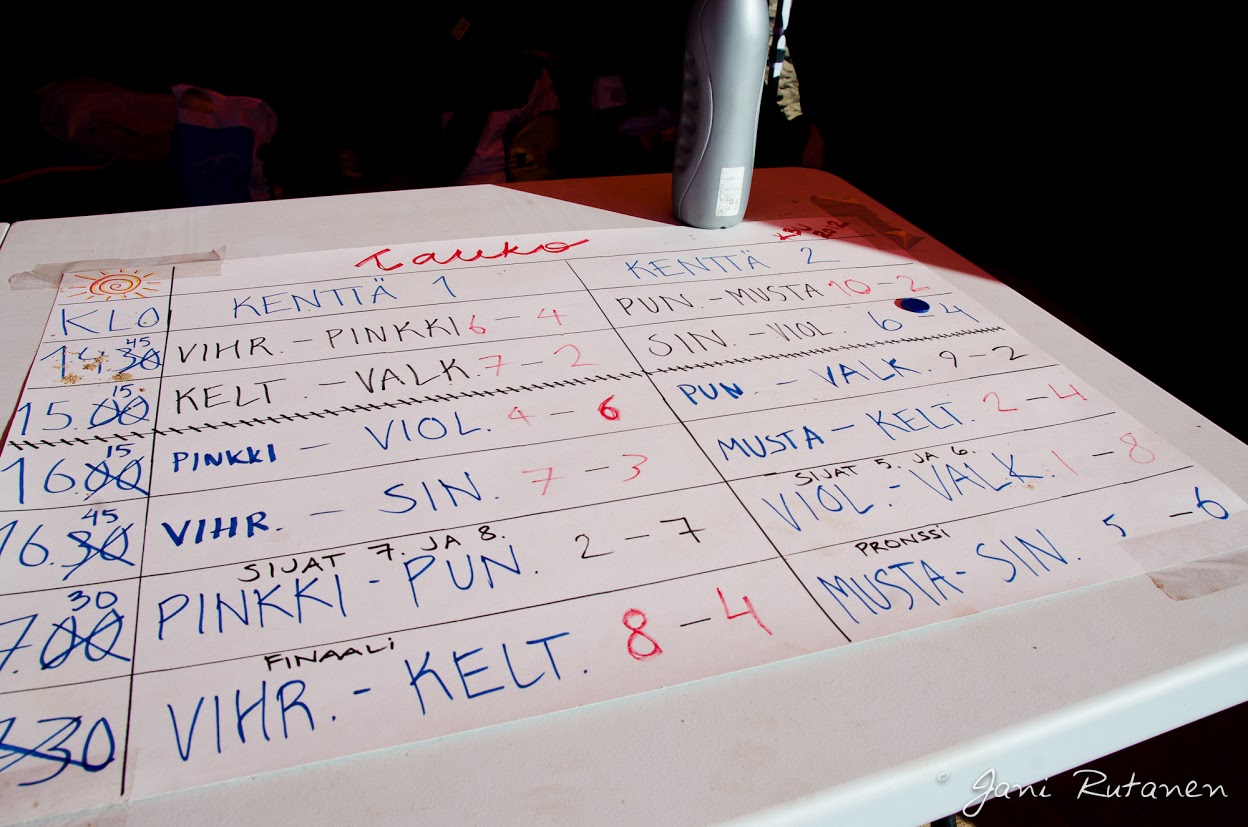 Tauko
2012
KLO KENTTÄ 1 KENTTÄ 2
14.30 45 VIHR. - PINKKI 6 - 4 PUN. - MUSTA 10 - 2
15.00 15 KELT. - VALK. 7 - 2 SIN. - VIOL. 6 - 4
16.00 15 PINKKI - VIOL. 4 - 6 PUN. - VALK. 9 - 2
16.30 45 VIHR. - SIN. 7 - 3 MUSTA - KELT. 2 - 4
SIJAT 7. JA 8. SIJAT 5. JA 6.
7.00 30 PINKKI - PUN. 2 - 7 VIOL. - VALK. 1 - 8
FINAALI PRONSSI
30 VIHR. - KELT. 8 - 4 MUSTA - SIN. 5 - 6
© Jani Rutanen